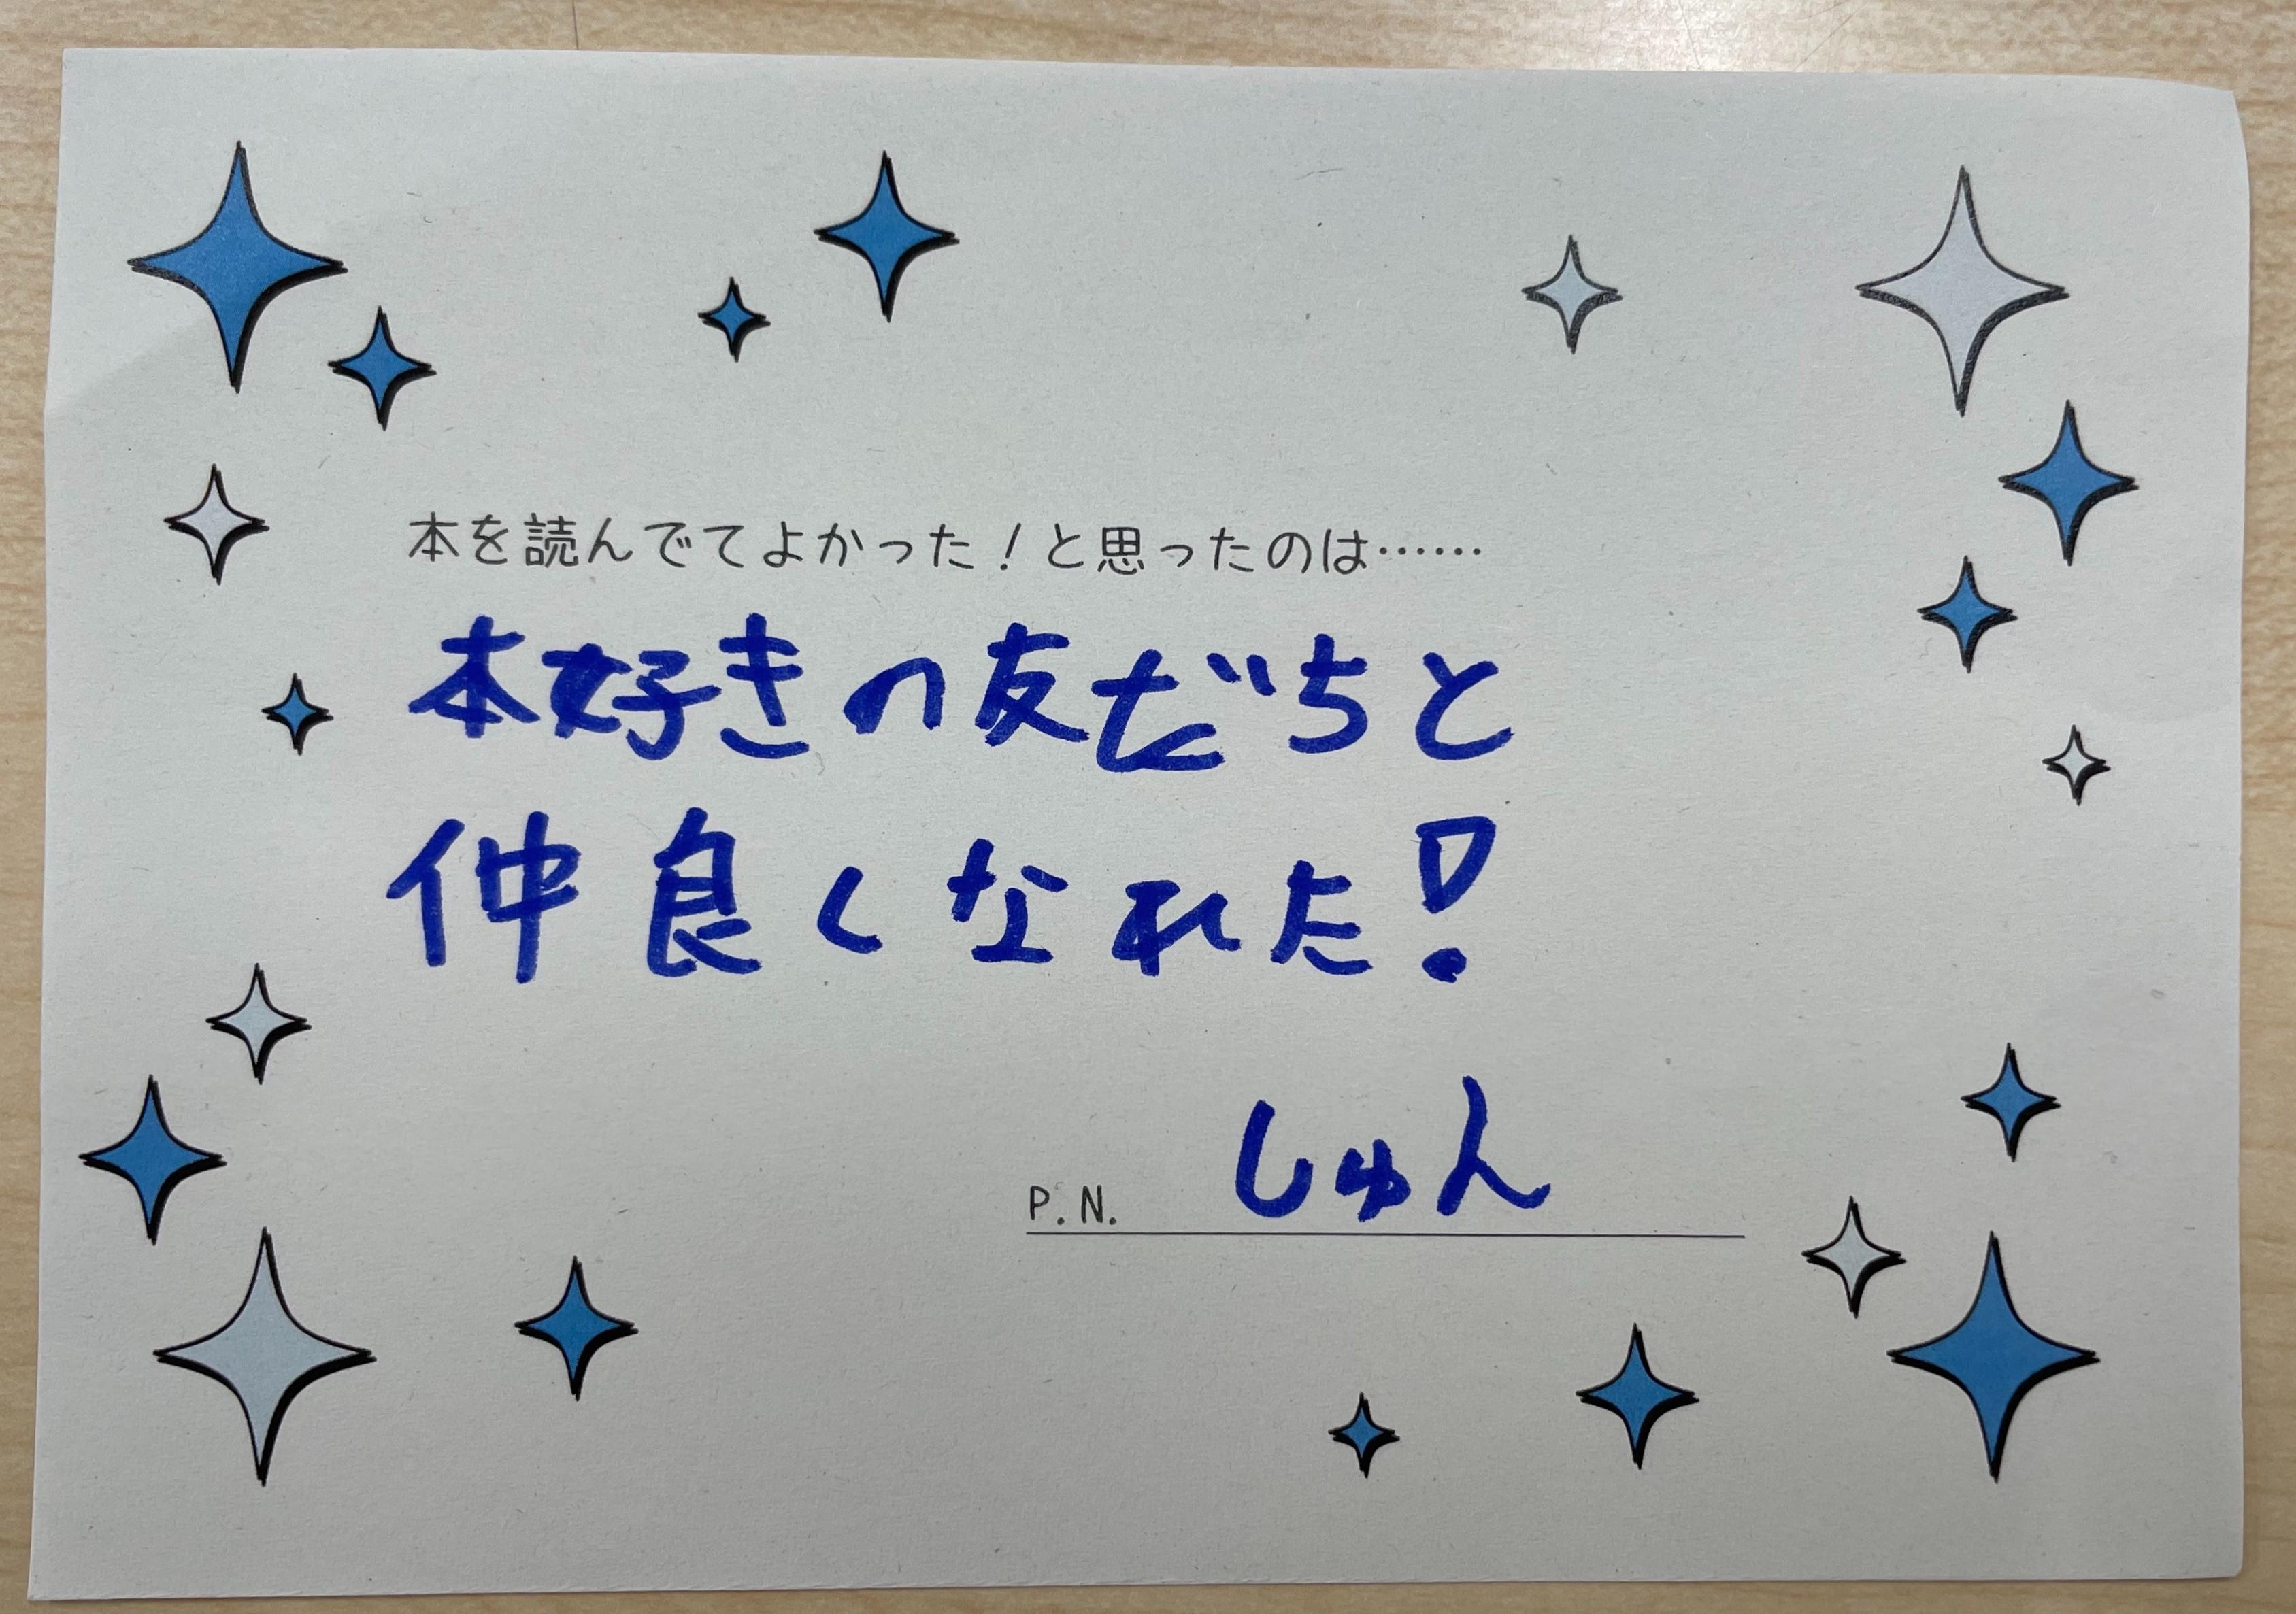 本を読んでてよかった！と思ったのは……
本好きの友だちと
仲良くなれた！
P.N. しゅん